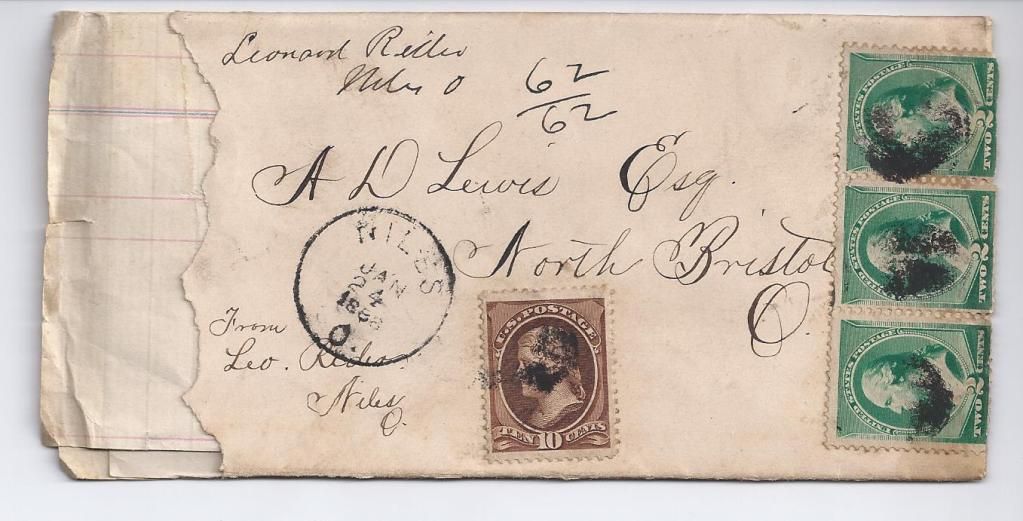 Leonard
Niles O
62
62
A D Lewis Esq.
North Bristol
O.
NILES
JAN
24
188
O.
From
Leo.
Niles
O.
U.S. POSTAGE
TEN 10 CENTS
UNITED STATES POSTAGE
TWO 2 CENTS
UNITED STATES POSTAGE
TWO 2 CENTS
UNITED STATES POSTAGE
TWO 2 CENTS